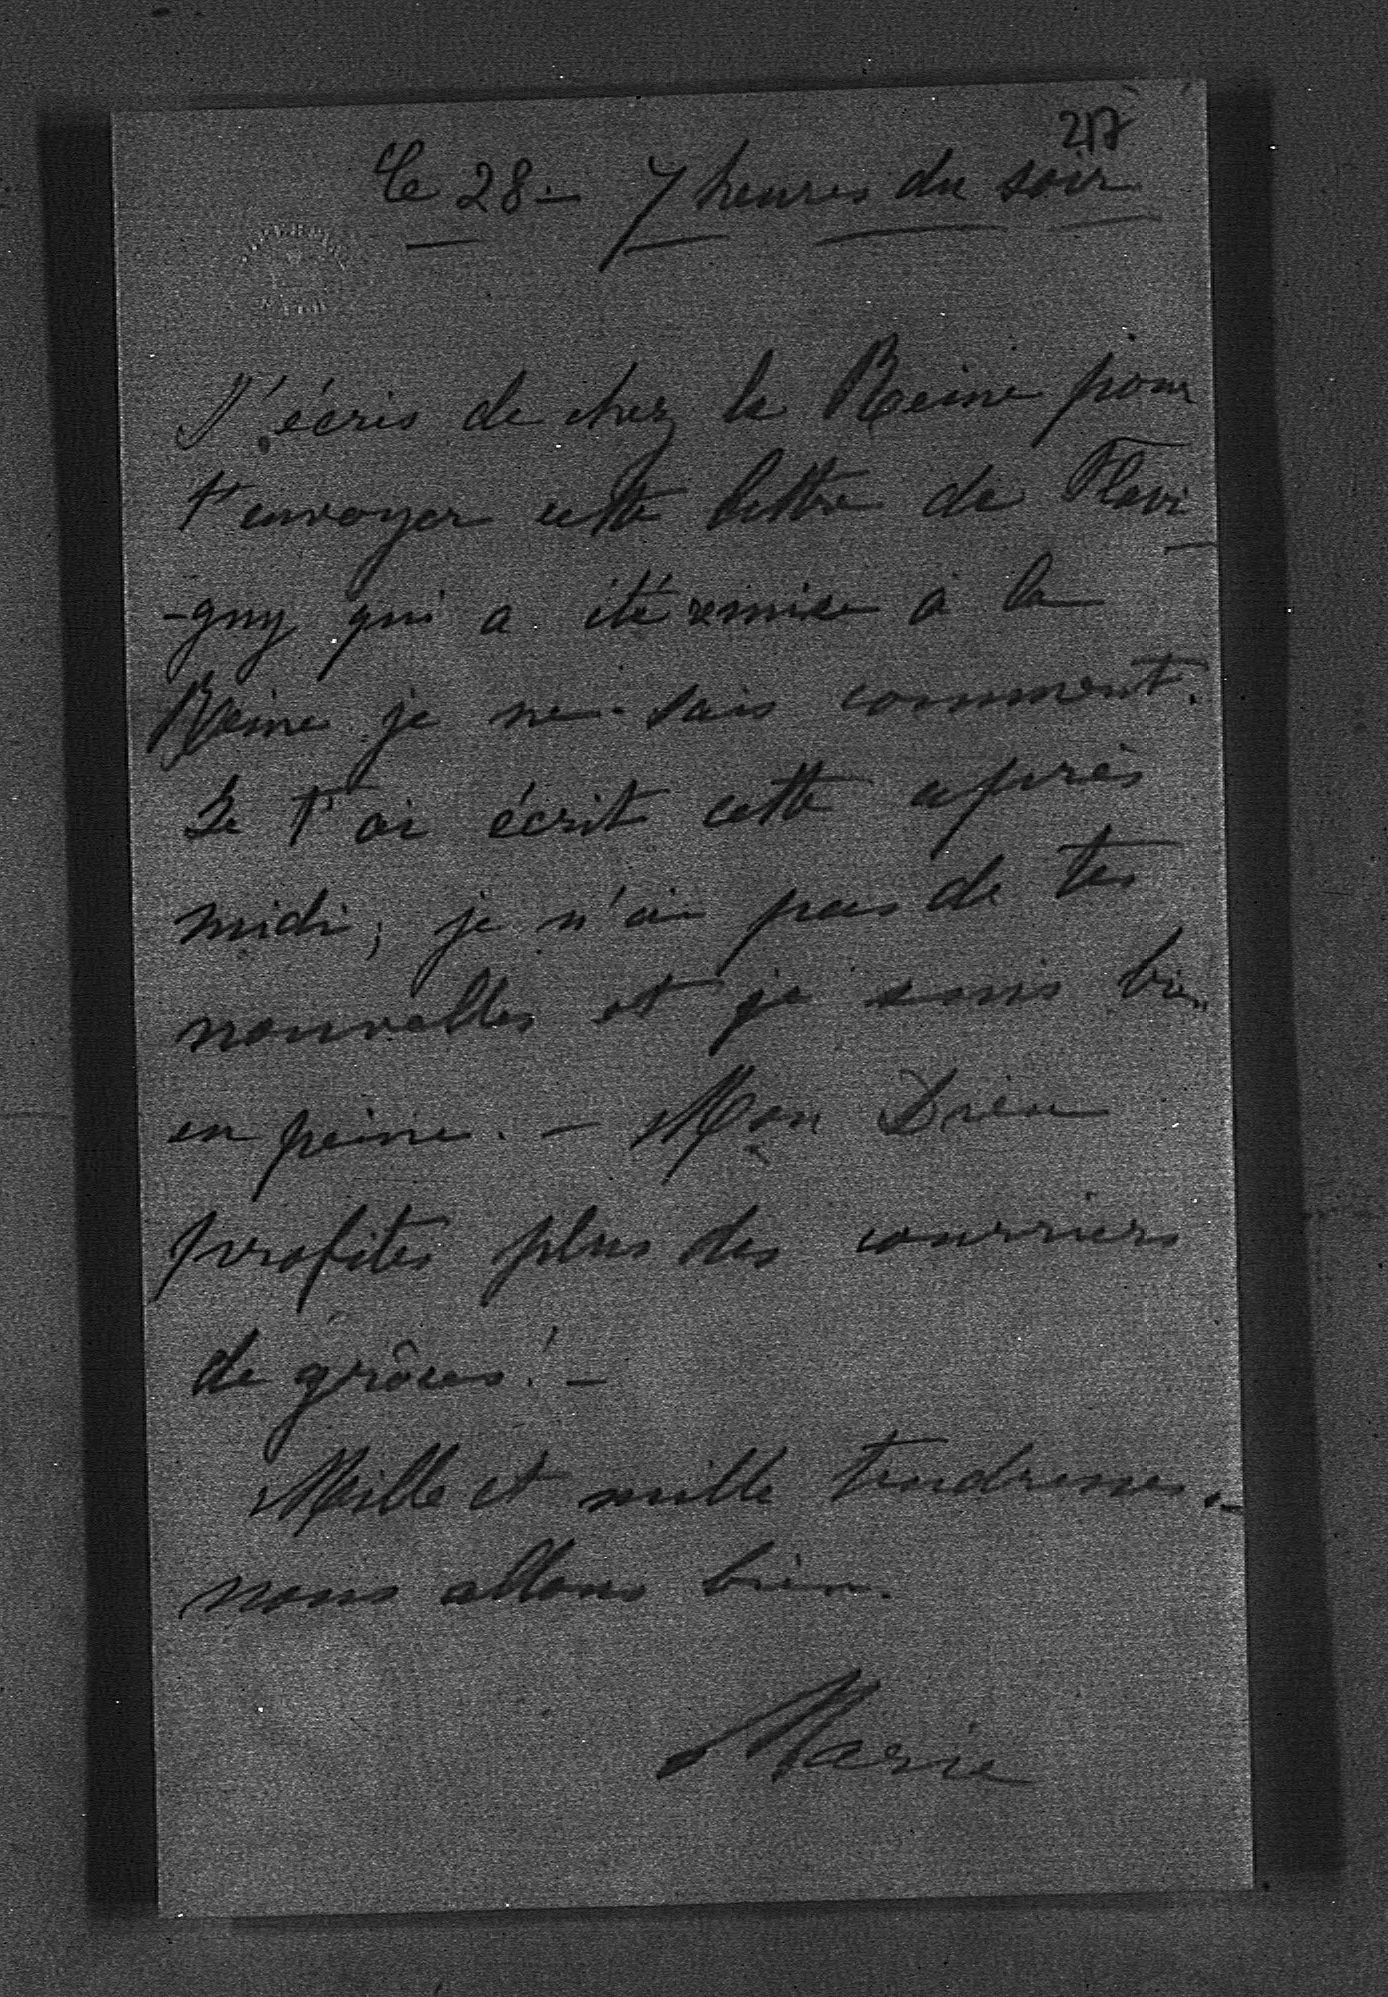 217
Le 28 - 7 heures du soir
J'écris de chez la Reine pour
t'envoyer cette lettre de Flavi
-gny qui a été remise à la
Reine je ne sais comment.
Je t'ai écrit cette après
midi; je n'ai pas de tes
nouvelles et je suis bien
en peine. - Mon Dieu
profites plus des courriers
de grâces! -
Mille et mille tendresses. -
nous allons bien.
Marie